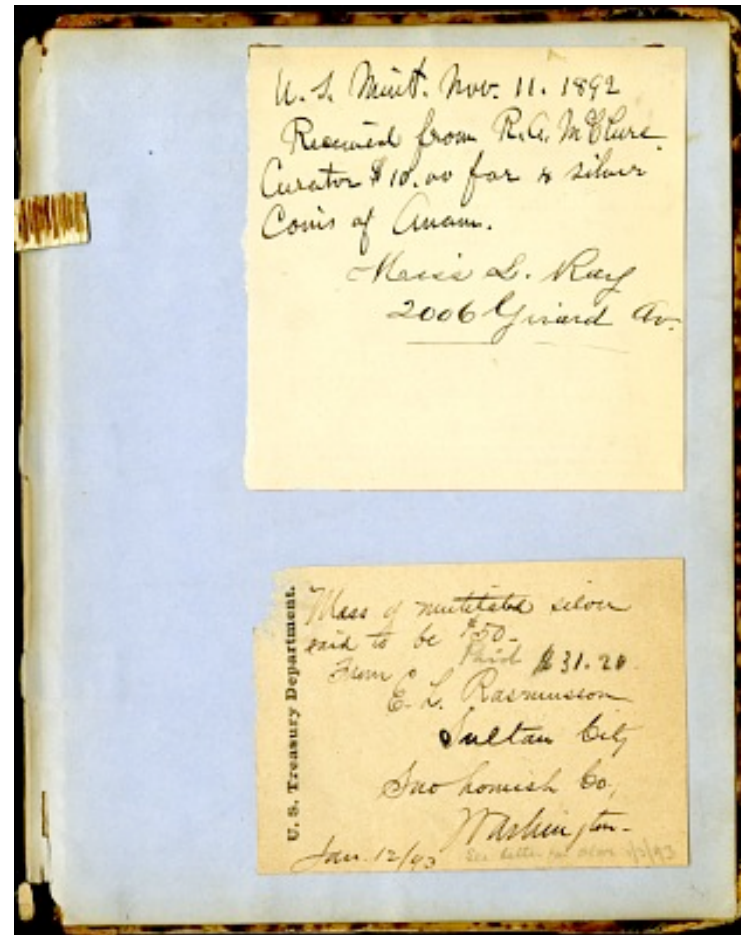 U. S. Mint. Nov. 11. 1892
Received from R. A. McClure
Curator $10.00 for 8 silver
Coins of Anam.
Miss L. Ray
2006 Girard Av.
U. S. Treasury Department.
Mass of mutilated silver
said to be $50-
Paid $31.20
From
E. L. Rasmusson
Sultan City
Snohomish Co,
Washington-
Jan. 12/93
See letter